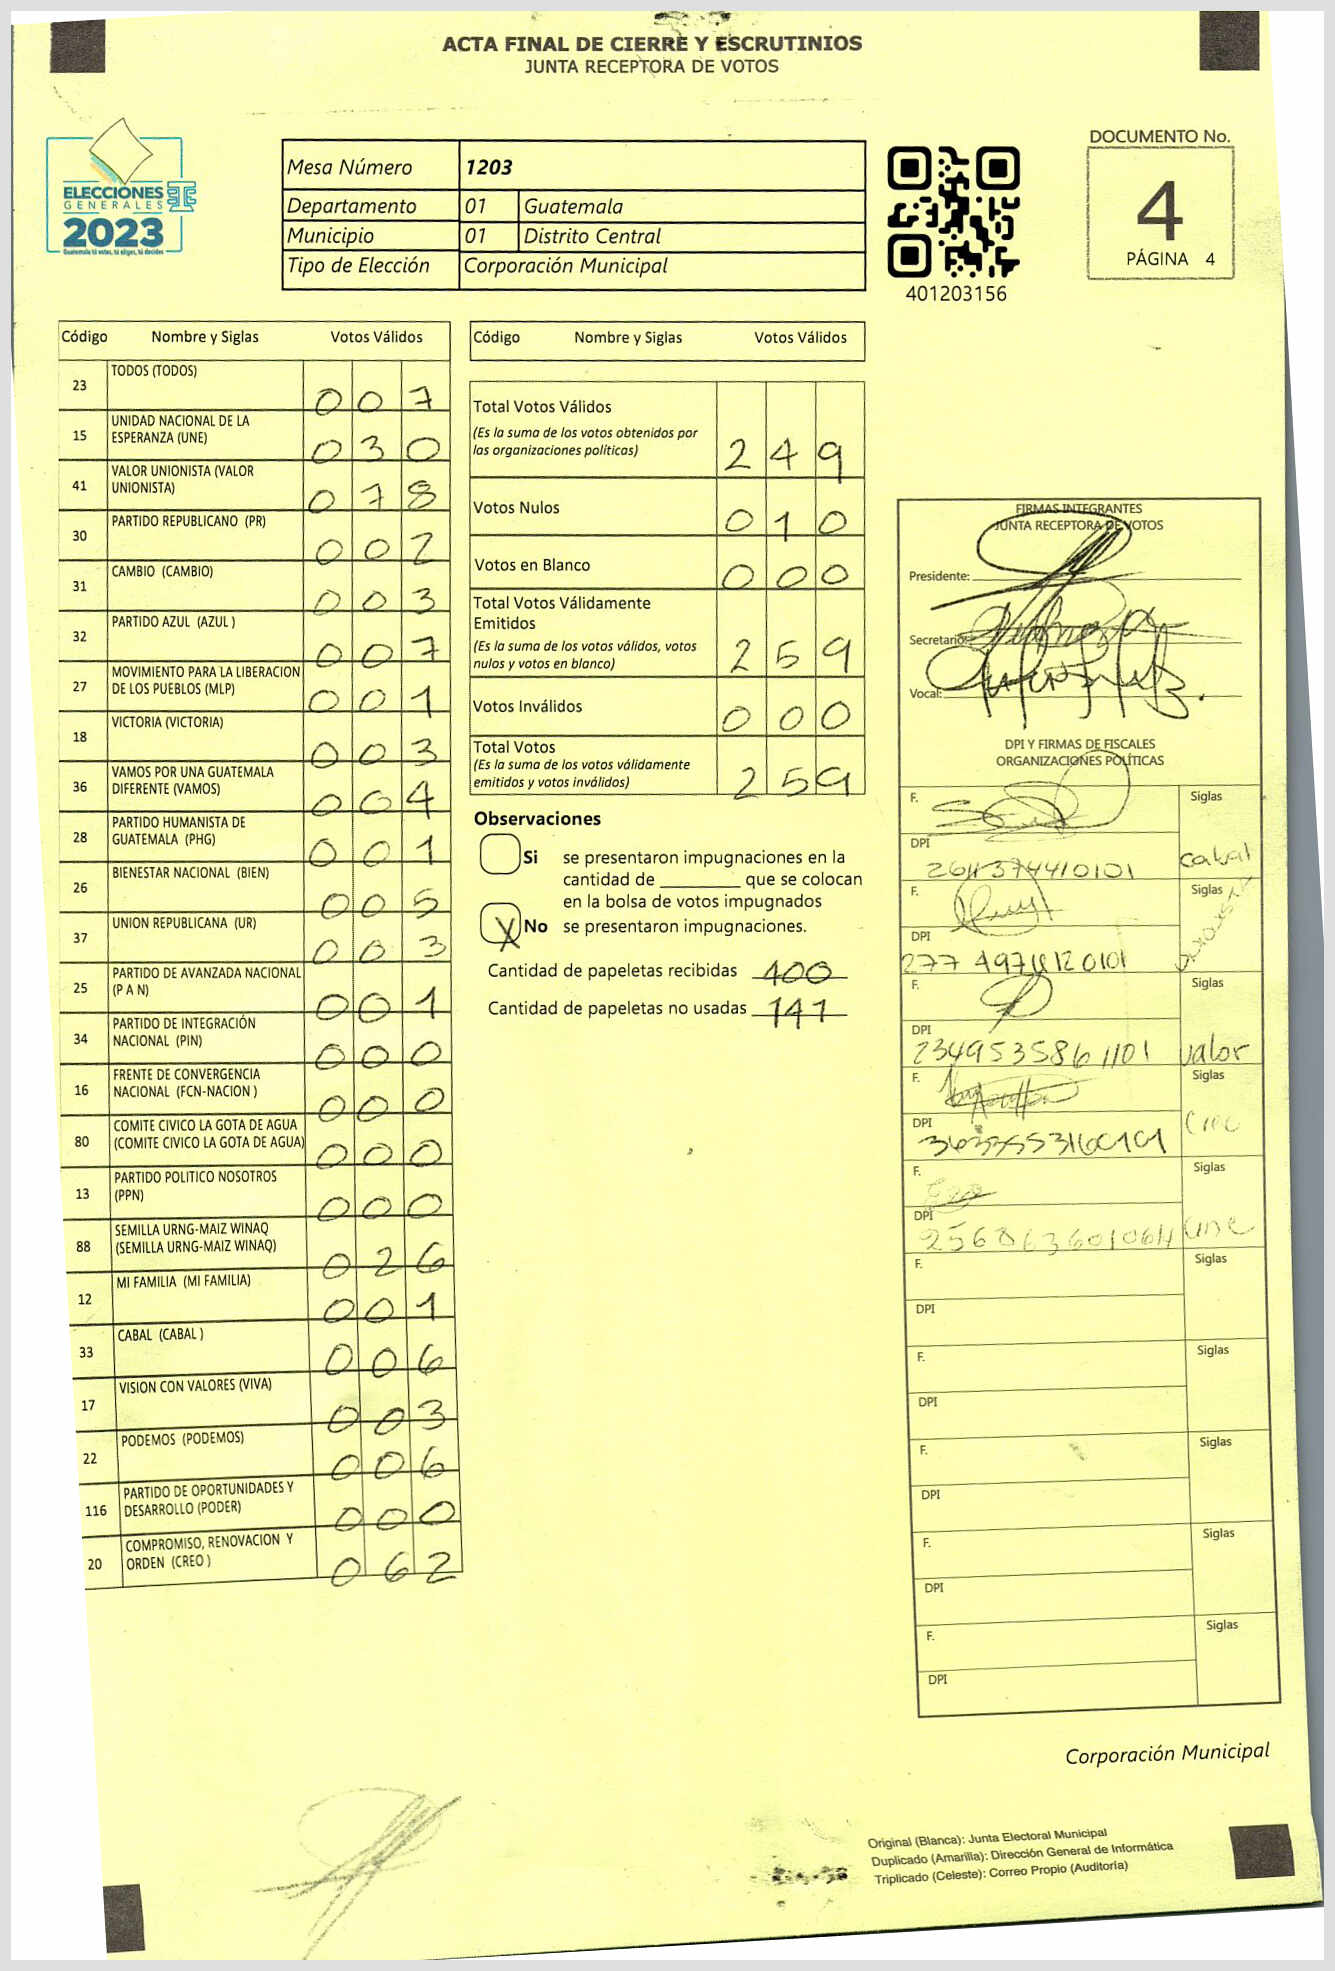 ACTA FINAL DE CIERRE Y ESCRUTINIOS
JUNTA RECEPTORA DE VOTOS
ELECCIONES
GENERALES
2023
Guatemala tú votas, tú eliges, tú decides
Mesa Número 1203
Departamento 01 Guatemala
Municipio 01 Distrito Central
Tipo de Elección Corporación Municipal
401203156
DOCUMENTO No.
4
PÁGINA 4
Código Nombre y Siglas Votos Válidos
23 TODOS (TODOS) 007
15 UNIDAD NACIONAL DE LA
ESPERANZA (UNE) 030
41 VALOR UNIONISTA (VALOR
UNIONISTA) 078
30 PARTIDO REPUBLICANO (PR) 002
31 CAMBIO (CAMBIO) 003
32 PARTIDO AZUL (AZUL ) 007
27 MOVIMIENTO PARA LA LIBERACION
DE LOS PUEBLOS (MLP) 001
18 VICTORIA (VICTORIA) 003
36 VAMOS POR UNA GUATEMALA
DIFERENTE (VAMOS) 004
28 PARTIDO HUMANISTA DE
GUATEMALA (PHG) 001
26 BIENESTAR NACIONAL (BIEN) 005
37 UNION REPUBLICANA (UR) 003
25 PARTIDO DE AVANZADA NACIONAL
(P A N) 001
34 PARTIDO DE INTEGRACIÓN
NACIONAL (PIN) 000
16 FRENTE DE CONVERGENCIA
NACIONAL (FCN-NACION ) 000
80 COMITE CIVICO LA GOTA DE AGUA
(COMITE CIVICO LA GOTA DE AGUA) 000
13 PARTIDO POLITICO NOSOTROS
(PPN) 000
88 SEMILLA URNG-MAIZ WINAQ
(SEMILLA URNG-MAIZ WINAQ) 026
12 MI FAMILIA (MI FAMILIA) 001
33 CABAL (CABAL ) 006
17 VISION CON VALORES (VIVA) 003
22 PODEMOS (PODEMOS) 006
116 PARTIDO DE OPORTUNIDADES Y
DESARROLLO (PODER) 000
20 COMPROMISO, RENOVACION Y
ORDEN (CREO ) 062
Código Nombre y Siglas Votos Válidos
Total Votos Válidos
(Es la suma de los votos obtenidos por
las organizaciones políticas) 249
Votos Nulos 010
Votos en Blanco 000
Total Votos Válidamente
Emitidos
(Es la suma de los votos válidos, votos
nulos y votos en blanco) 259
Votos Inválidos 000
Total Votos
(Es la suma de los votos válidamente
emitidos y votos inválidos) 259
Observaciones
Si se presentaron impugnaciones en la
cantidad de ________ que se colocan
en la bolsa de votos impugnados
X No se presentaron impugnaciones.
Cantidad de papeletas recibidas 400
Cantidad de papeletas no usadas 141
FIRMAS INTEGRANTES
JUNTA RECEPTORA DE VOTOS
Presidente:
Secretario:
Vocal:
DPI Y FIRMAS DE FISCALES
ORGANIZACIONES POLÍTICAS
F. Siglas
DPI cabal
F. Siglas
DPI
F. Siglas
DPI
2349535861101 valor
F. Siglas
DPI
F. Siglas
DPI
une
F. Siglas
DPI
F. Siglas
DPI
F. Siglas
DPI
F. Siglas
DPI
F. Siglas
DPI
Corporación Municipal
Original (Blanca): Junta Electoral Municipal
Duplicado (Amarilla): Dirección General de Informática
Triplicado (Celeste): Correo Propio (Auditoría)